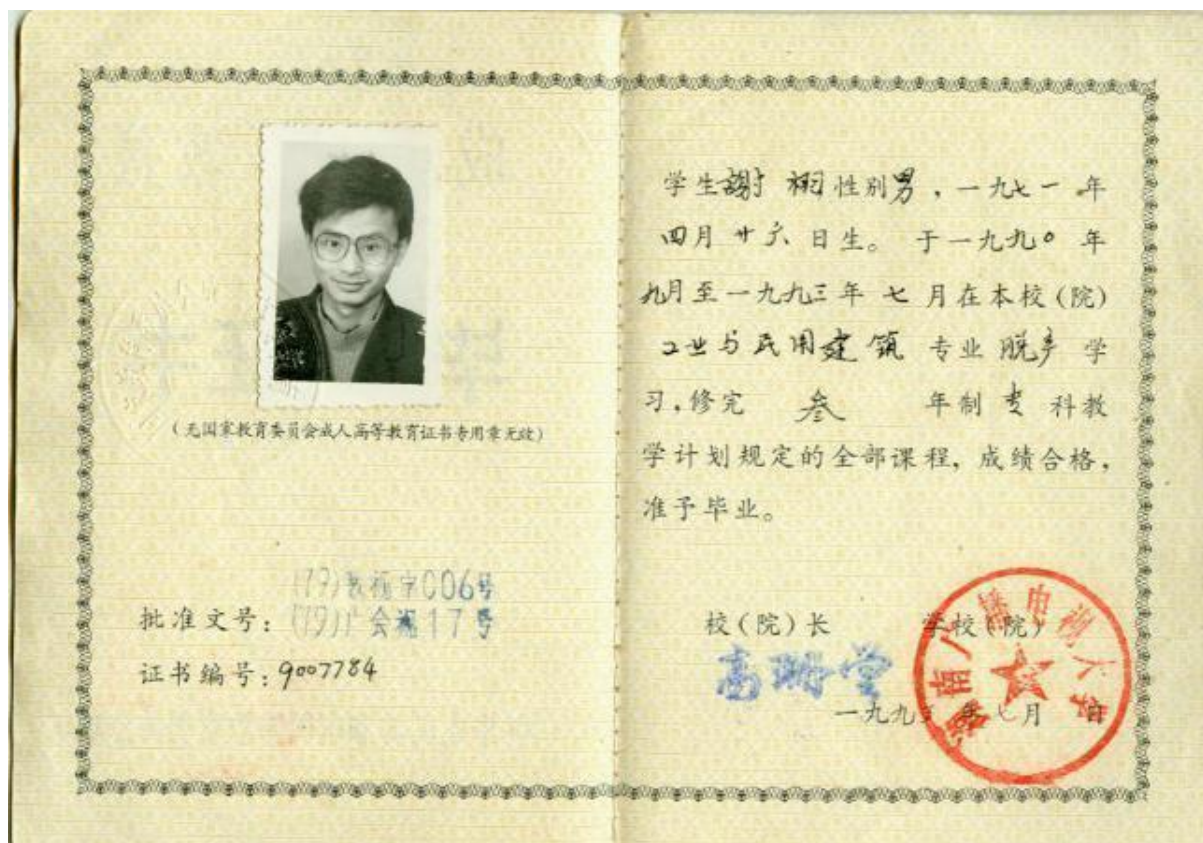 (无国家教育委员会成人高等教育证书专用章无效)
批准文号:(79)教视字006号
(79)广会视17号
证书编号:9007784
学生謝栩性别男,一九七一年
四月廿六日生。于一九九〇年
九月至一九九三年七月在本校(院)
工业与民用建筑专业脱产学
习,修完叁年制专科教
学计划规定的全部课程,成绩合格,
准予毕业。
校(院)长 学校(院)
一九九三年七月 日
湖南广播电视大学